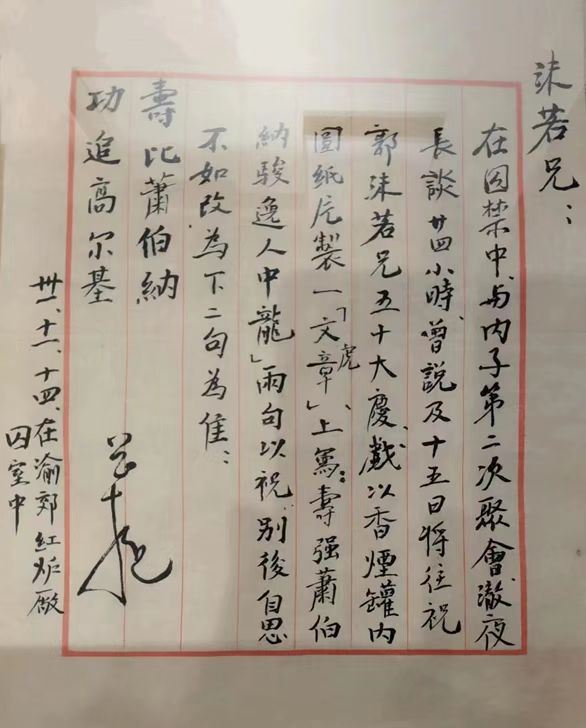 沫若兄：
在囚禁中、与内子第二次聚會、澈夜
長談廿四小時、曾説及十五日将往祝
郭沫若兄五十大慶、戲以香煙罐内
圓紙片製一「文虎章」、上寫：壽强蕭伯
納駿逸人中龍」兩句以祝、别後自思
不如改為下二句為佳：
壽比蕭伯納
功追高尔基
卅一、十一、十四、在渝郊红炉廠
囚室中